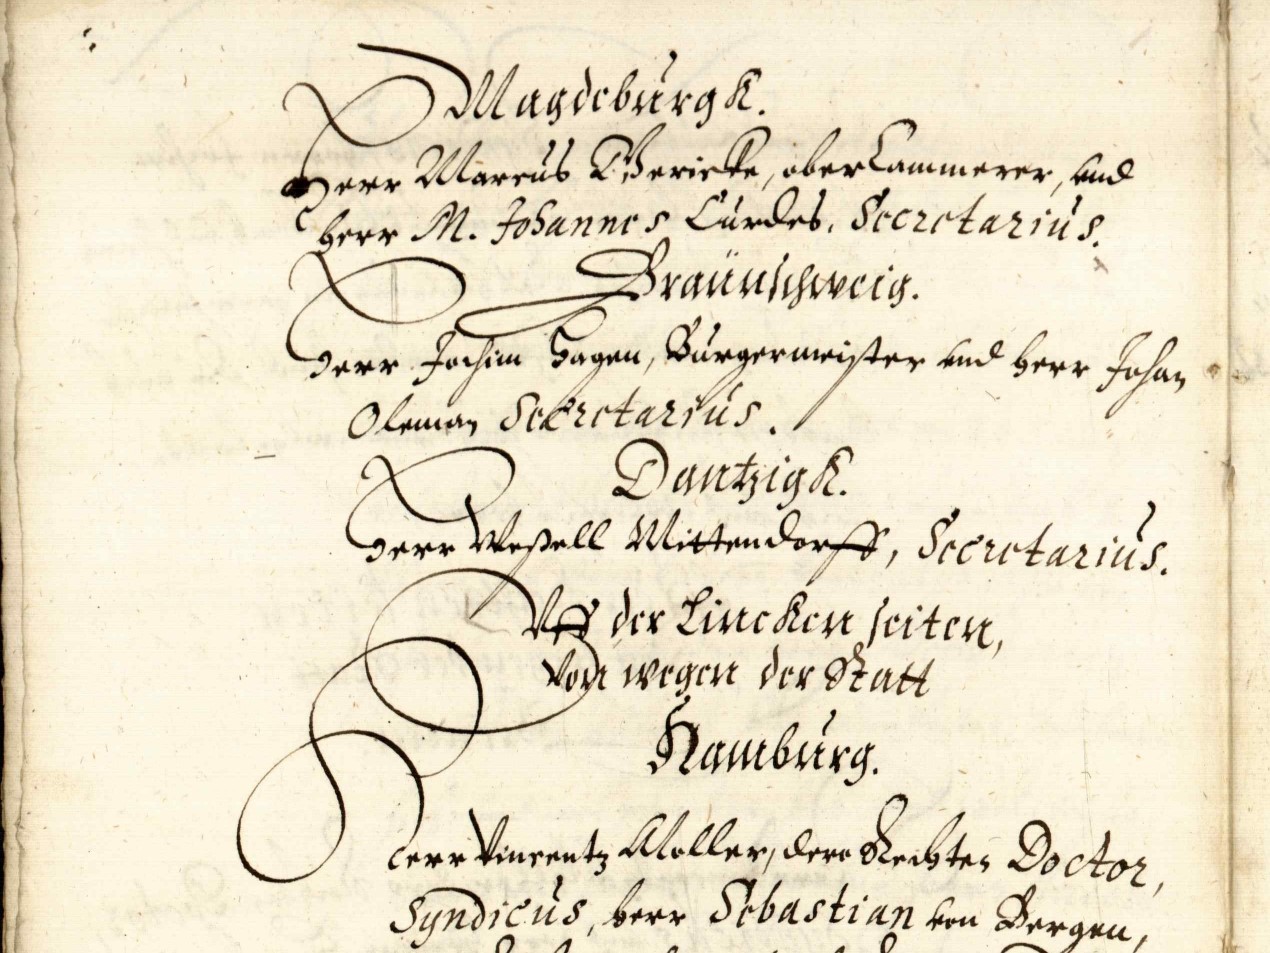 Magdeburgk.
Herr Marcus Gericke, ober Cammerer, vnd
Herr M. Johannes Curdes, Secretarius.
Braünschweig.
Herr Jochim Hagen, Bürgermeister vnd Herr Johan
Oleman Secretarius.
Dantzigk.
Herr Weßell Mittendorff, Secretarius.
Vff der Lincken seiten,
von wegen der Statt
Hamburg.
Herr Vincentz Moller, dero Rechten Doctor,
Syndicus, Herr Sebastian von Bergen,